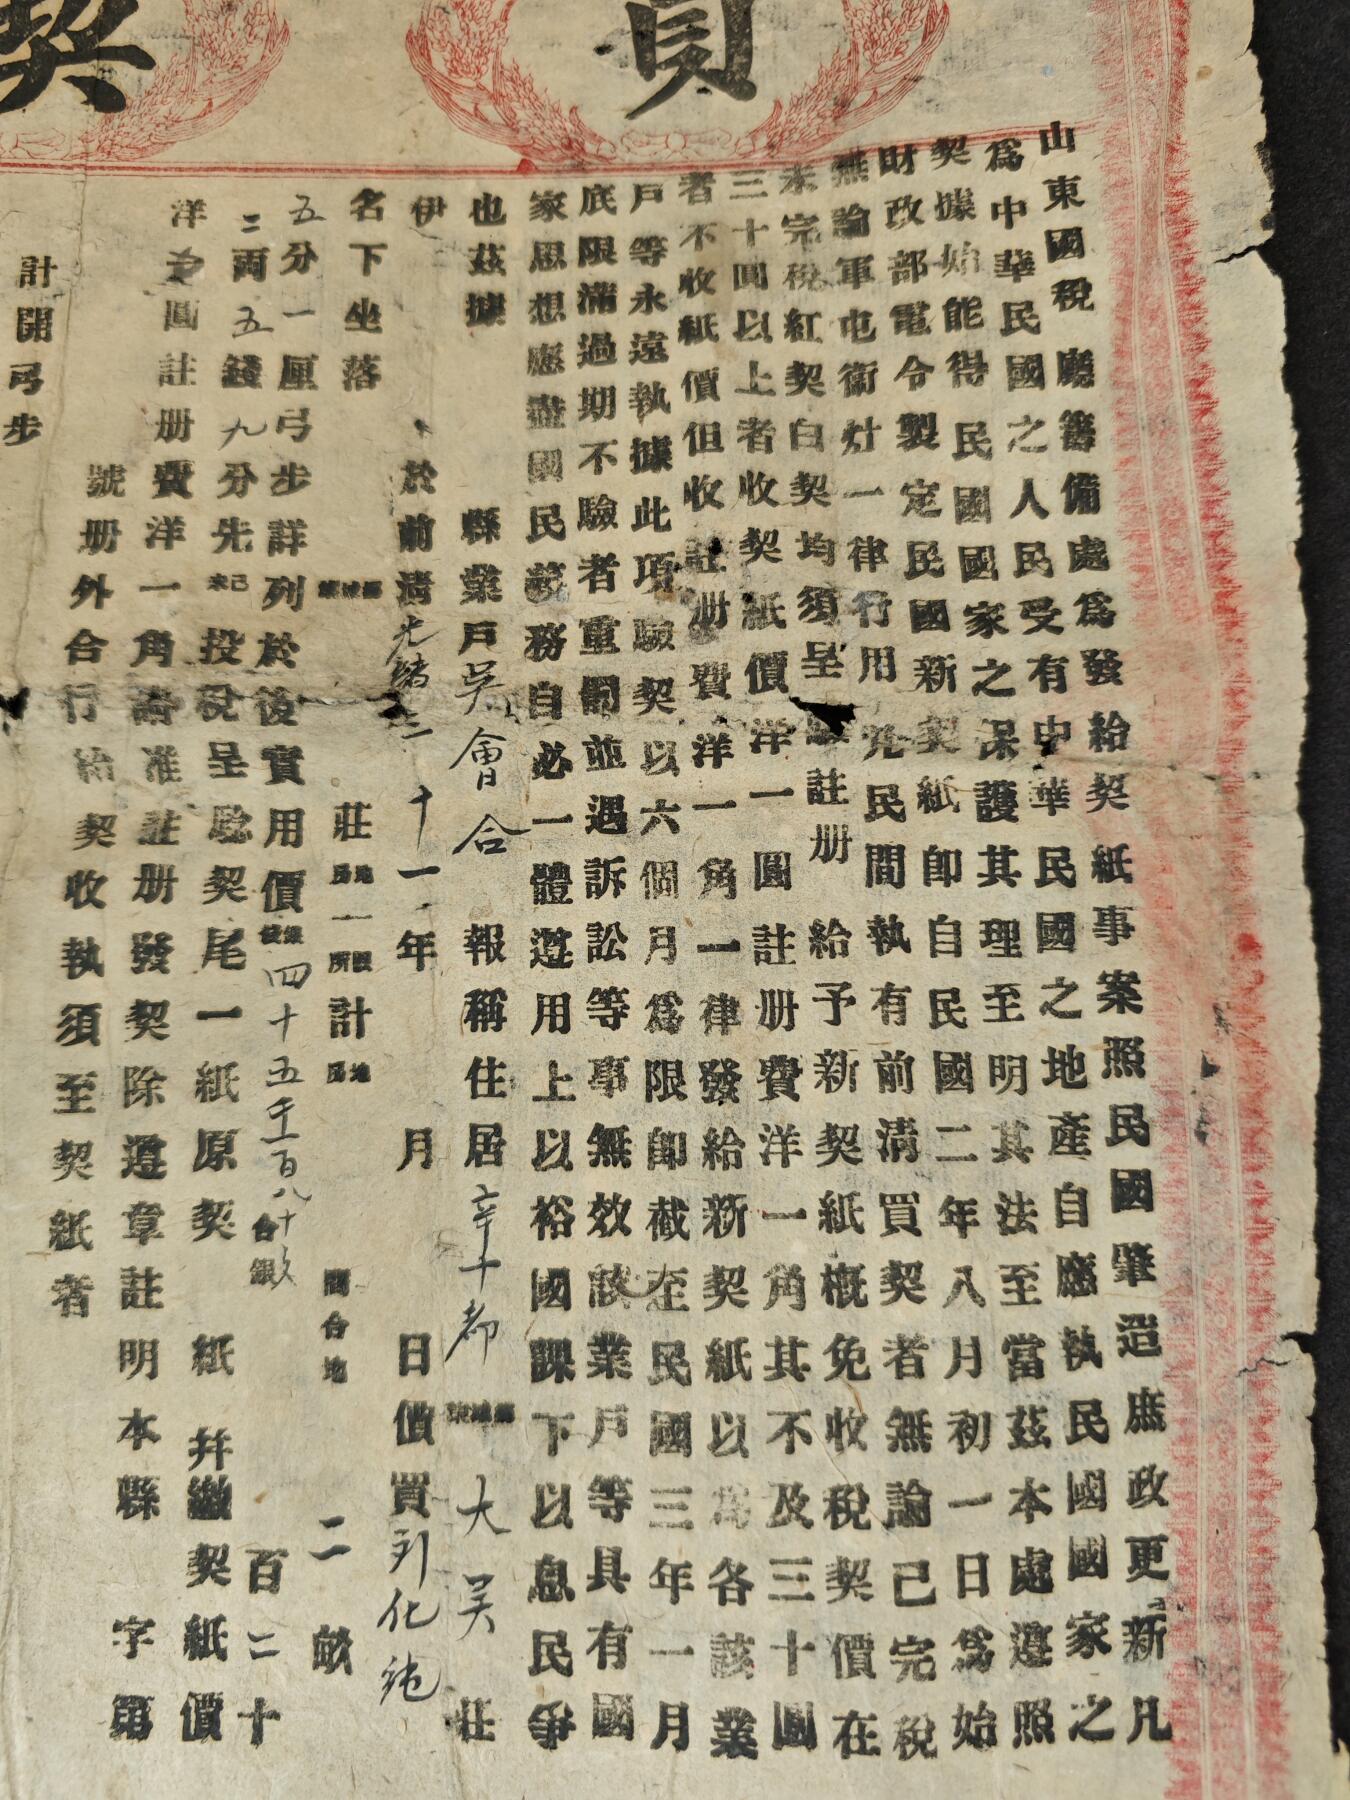 買契
山東國稅廳籌備處爲發給契紙事案照民國肇造庶政更新凡
爲中華民國之人民受有中華民國之地產自應執民國國家之
契據始能得民國國家之保護其理至明其法至當茲本處遵照
財政部電令製定民國新契紙卽自民國二年八月初一日爲始
無論軍屯衛灶一律行用凡民間執有前淸買契者無論已完稅
未完稅紅契白契均須呈註册給予新契紙槪免收稅契價在
三十圓以上者收契紙價洋一圓註册費洋一角其不及三十圓
者不收紙價但收註册費洋一角一律發給新契紙以爲各該業
戶等永遠執據此項驗契以六個月爲限卽截至民國三年一月
底限滿過期不驗者重罰並遇訴訟等事無效該業戶等具有國
家思想應盡國民義務自必一體遵用上以裕國課下以息民爭
也茲據 縣業戶吳會合 報稱住居辛十都 大吳莊
伊 於前淸光緒三十一年 月 日價買列化純
名下坐落 莊 計 二畝
五分一厘弓步詳列於後實用價銀四十五千百八十 合銀 百二十
二兩五錢九分先已未投稅呈驗契尾一紙原契 紙幷繳契紙價
洋 圓註册費洋一角請准註册發契除遵章註明本縣 字第
號册外合行給契收執須至契紙者
計開弓步